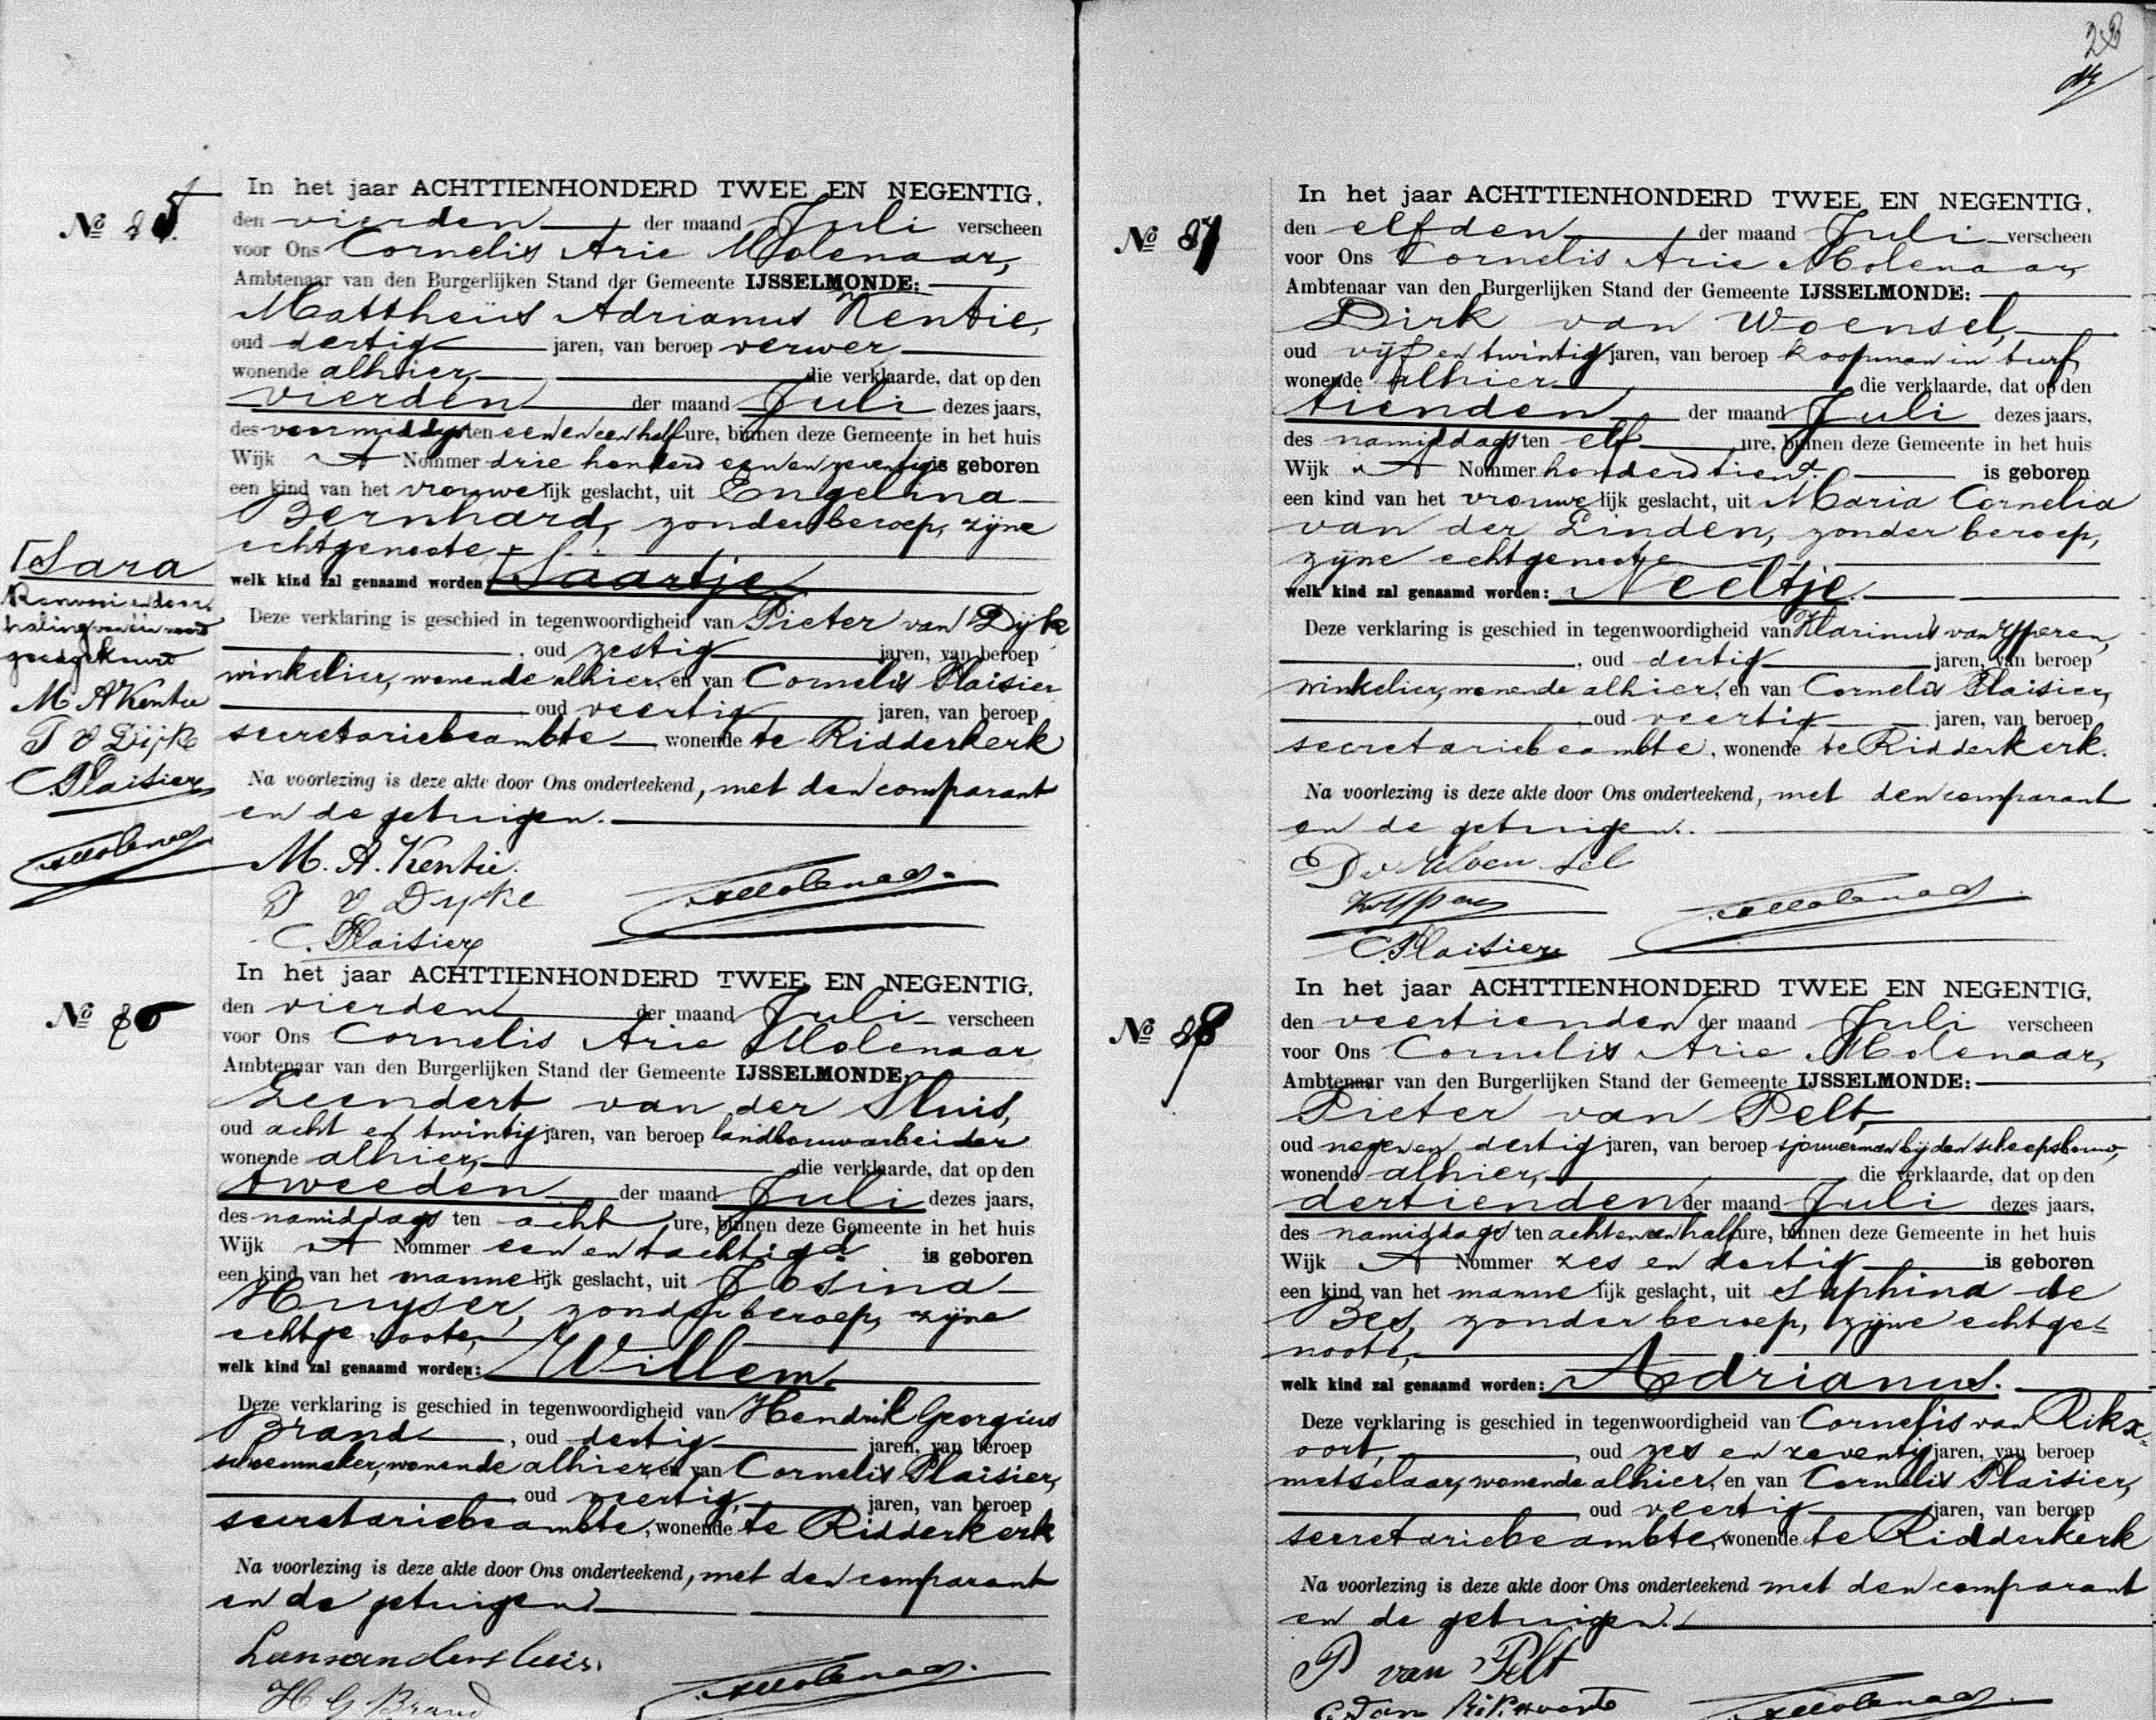 In het jaar ACHTTIENHONDERD TWEE EN NEGENTIG,
den vierden der maand Juli verscheen
voor Ons Cornelis Arie Molenaar,
Ambtenaar van den Burgerlijken Stand der Gemeente IJSSELMONDE:
Mattheus Adrianus Kentie,
oud dertig jaren, van beroep verwer
wonende alhier, die verklaarde, dat op den
vierden der maand Juli dezes jaars,
des voormiddags ten een en een half ure, binnen deze Gemeente in het huis
Wijk A Nommer drie honderd een en zeventig is geboren
een kind van het vrouwelijk geslacht, uit Engelina
Bernhard, zonder beroep, zijne
echtgenoote,
welk kind zal genaamd worden: Saartje.
Deze verklaring is geschied in tegenwoordigheid van Pieter van Dijk
, oud zestig jaren, van beroep
winkelier, wonende alhier, en van Cornelis Plaisier
oud veertig jaren, van beroep
secretariebeambte wonende te Ridderkerk
Na voorlezing is deze akte door Ons onderteekend, met den comparant
en de getuigen.
M. A. Kentie.
P v Dyke
C. Plaisier
Sara
Renvooi en door-
haling van één woord
goedgekeurd
M A Kentie
P v Dijke
C Plaisier
No 26
In het jaar ACHTTIENHONDERD TWEE EN NEGENTIG,
den vierden der maand Juli verscheen
voor Ons Cornelis Arie Molenaar
Ambtenaar van den Burgerlijken Stand der Gemeente IJSSELMONDE:
Leendert van der Sluis,
oud acht en twintig jaren, van beroep landbouwarbeider
wonende alhier, die verklaarde, dat op den
tweeden der maand Juli dezes jaars,
des namiddags ten acht ure, binnen deze Gemeente in het huis
Wijk A Nommer een en tachtig is geboren
een kind van het mannelijk geslacht, uit Josina
Huyser, zonder beroep, zijne
echtgenoote,
welk kind zal genaamd worden: Willem.
Deze verklaring is geschied in tegenwoordigheid van Hendrik Georgius
Brand, oud dertig jaren, van beroep
schoenmaker, wonende alhier, en van Cornelis Plaisier,
oud veertig, jaren, van beroep
secretariebeambte, wonende te Ridderkerk
Na voorlezing is deze akte door Ons onderteekend, met den comparant
en de getuigen
H G Brand
28
In het jaar ACHTTIENHONDERD TWEE EN NEGENTIG,
den elfden der maand Juli verscheen
voor Ons Cornelis Arie Molenaar,
Ambtenaar van den Burgerlijken Stand der Gemeente IJSSELMONDE:
Dirk van Woensel,
oud vijf en twintig jaren, van beroep koopman in turf
wonende alhier die verklaarde, dat op den
tienden der maand Juli dezes jaars,
des namiddags ten elf ure, binnen deze Gemeente in het huis
Wijk A Nommer honderd tien is geboren
een kind van het vrouwelijk geslacht, uit Maria Cornelia
van der Linden, zonder beroep,
zijne echtgenoote
welk kind zal genaamd worden: Neeltje.
Deze verklaring is geschied in tegenwoordigheid van Klarinus van Yperen,
, oud dertig jaren, van beroep
winkelier, wonende alhier, en van Cornelis Plaisier,
, oud veertig jaren, van beroep
secretariebeambte, wonende te Ridderkerk.
Na voorlezing is deze akte door Ons onderteekend, met den comparant
en de getuigen.
D v Woensel
C. Plaisier
No 28
In het jaar ACHTTIENHONDERD TWEE EN NEGENTIG,
den veertienden der maand Juli verscheen
voor Ons Cornelis Arie Molenaar,
Ambtenaar van den Burgerlijken Stand der Gemeente IJSSELMONDE:
Pieter van Pelt,
oud negen en dertig jaren, van beroep sjouwerman bij den scheepsbouw,
wonende alhier, die verklaarde, dat op den
dertienden der maand Juli dezes jaars,
des namiddags ten acht en een half ure, binnen deze Gemeente in het huis
Wijk A Nommer zes en dertig is geboren
een kind van het mannelijk geslacht, uit Saphina de
Bes, zonder beroep, zijne echtge-
noote,
welk kind zal genaamd worden: Adrianus.
Deze verklaring is geschied in tegenwoordigheid van Cornelis van Rikx-
oort, , oud zes en zeventig jaren, van beroep
metselaar, wonende alhier, en van Cornelis Plaisier,
, oud veertig jaren, van beroep
secretariebeambte, wonende te Ridderkerk
Na voorlezing is deze akte door Ons onderteekend met den comparant
en de getuigen.
P van Pelt